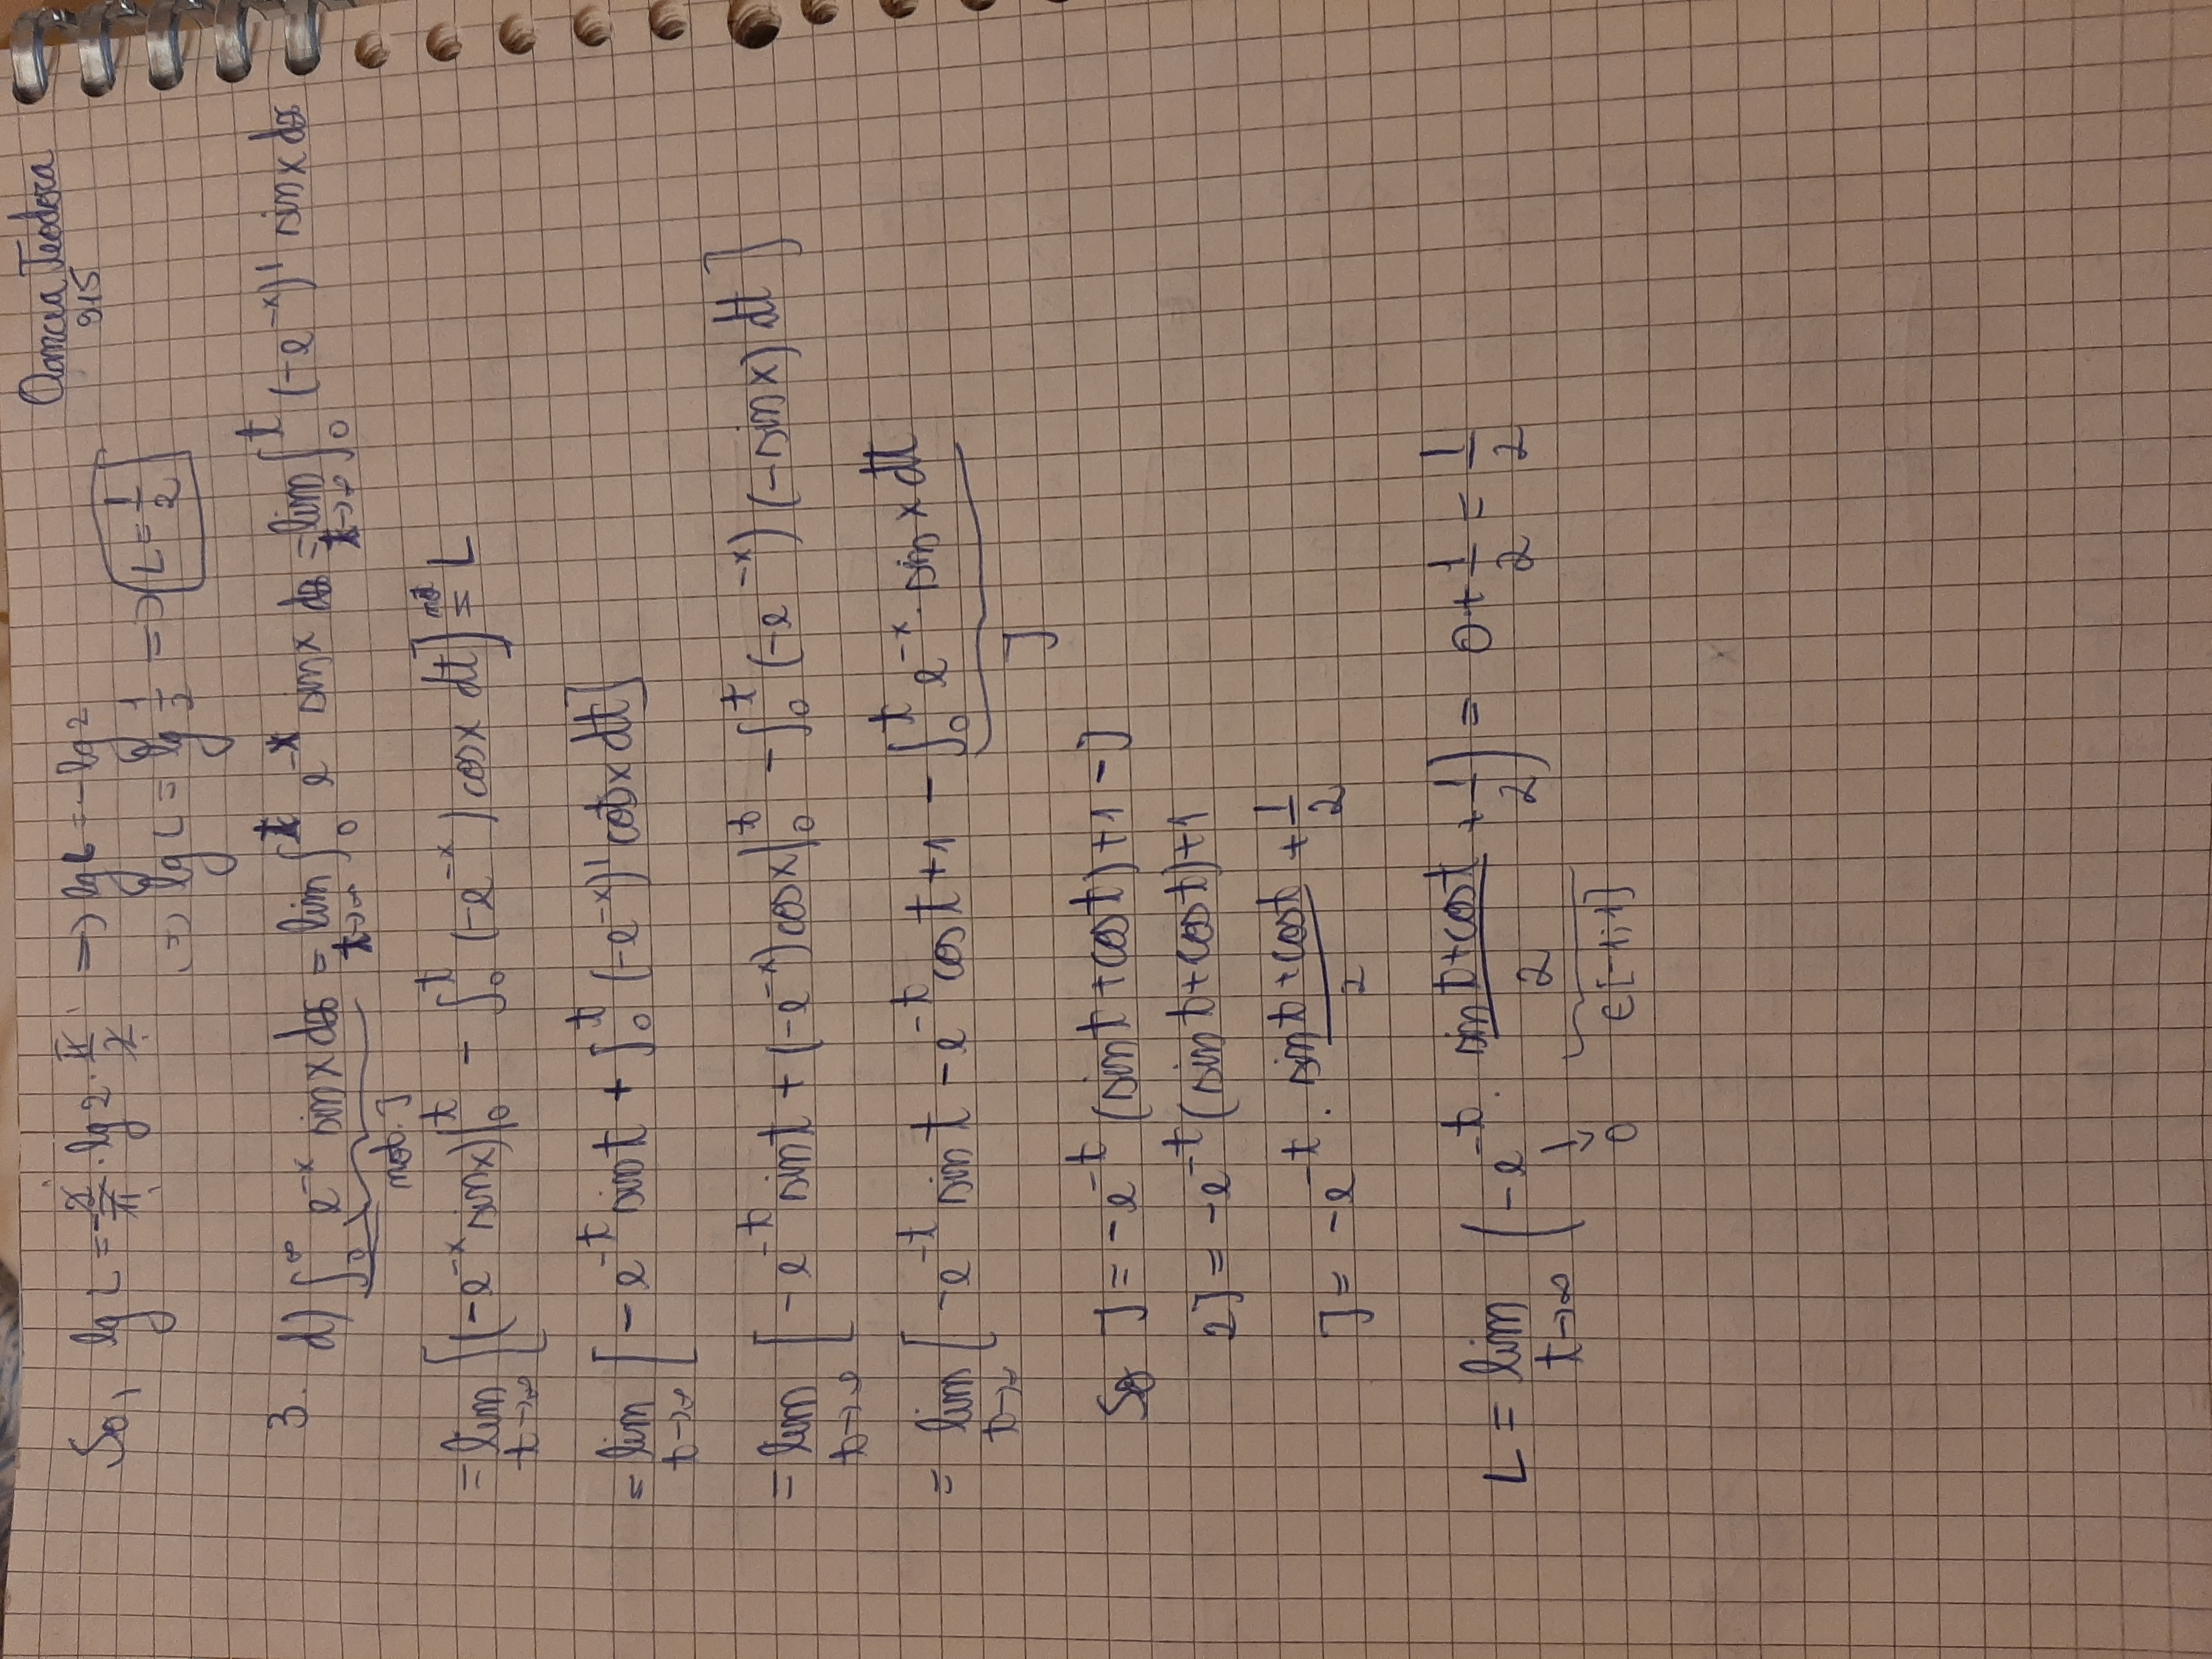 Oancea Teodora
915
So, lg L = -2/π · lg 2 · π/2 => lg L = -lg 2
=> lg L = lg 1/2 => L = 1/2
3. d) ∫₀^∞ e^(-x) sin x dx = lim t→∞ ∫₀^t e^(-x) sin x dx = lim t→∞ ∫₀^t (-e^(-x))' sin x dx
not. J
= lim t→∞ [(-e^(-x) sin x)|₀^t - ∫₀^t (-e^(-x)) cos x dt] not = L
= lim t→∞ [-e^(-t) sin t + ∫₀^t (-e^(-x))' cos x dt]
= lim t→∞ [-e^(-t) sin t + (-e^(-x)) cos x|₀^t - ∫₀^t (-e^(-x)) (-sin x) dt]
= lim t→∞ [-e^(-t) sin t - e^(-t) cos t + 1 - ∫₀^t e^(-x) · sin x dt
J
So J = -e^(-t) (sin t + cos t) + 1 - J
2J = -e^(-t) (sin t + cos t) + 1
J = -e^(-t) · (sin t + cos t)/2 + 1/2
L = lim t→∞ (-e^(-t) · (sin t + cos t)/2 + 1/2) = 0 + 1/2 = 1/2
↓ 0 ∈ [-1; 1]